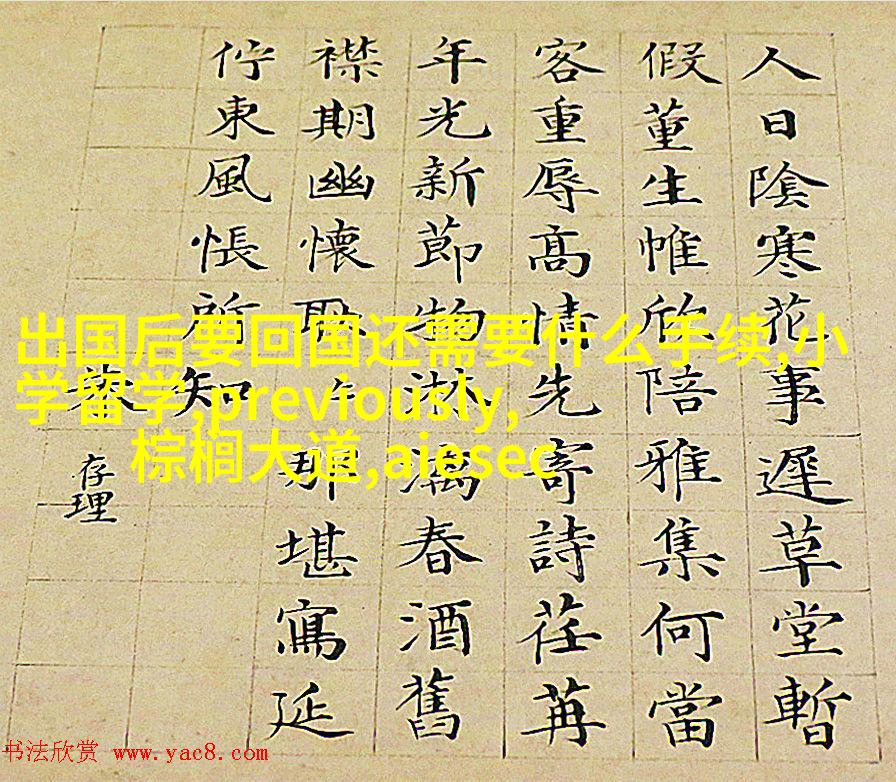 人日陰寒花事遲草堂暫
假董生帷欣陪雅集何當
客重辱高情先寄詩荏苒
年光新節物淋漓春酒舊
襟期幽懷耿那堪寫延
佇東風悵所知
存理
出国后要回国还需要什么手续,小
学留学,previously,
棕榈大道,aiesec
书法欣赏 www.yac8.com